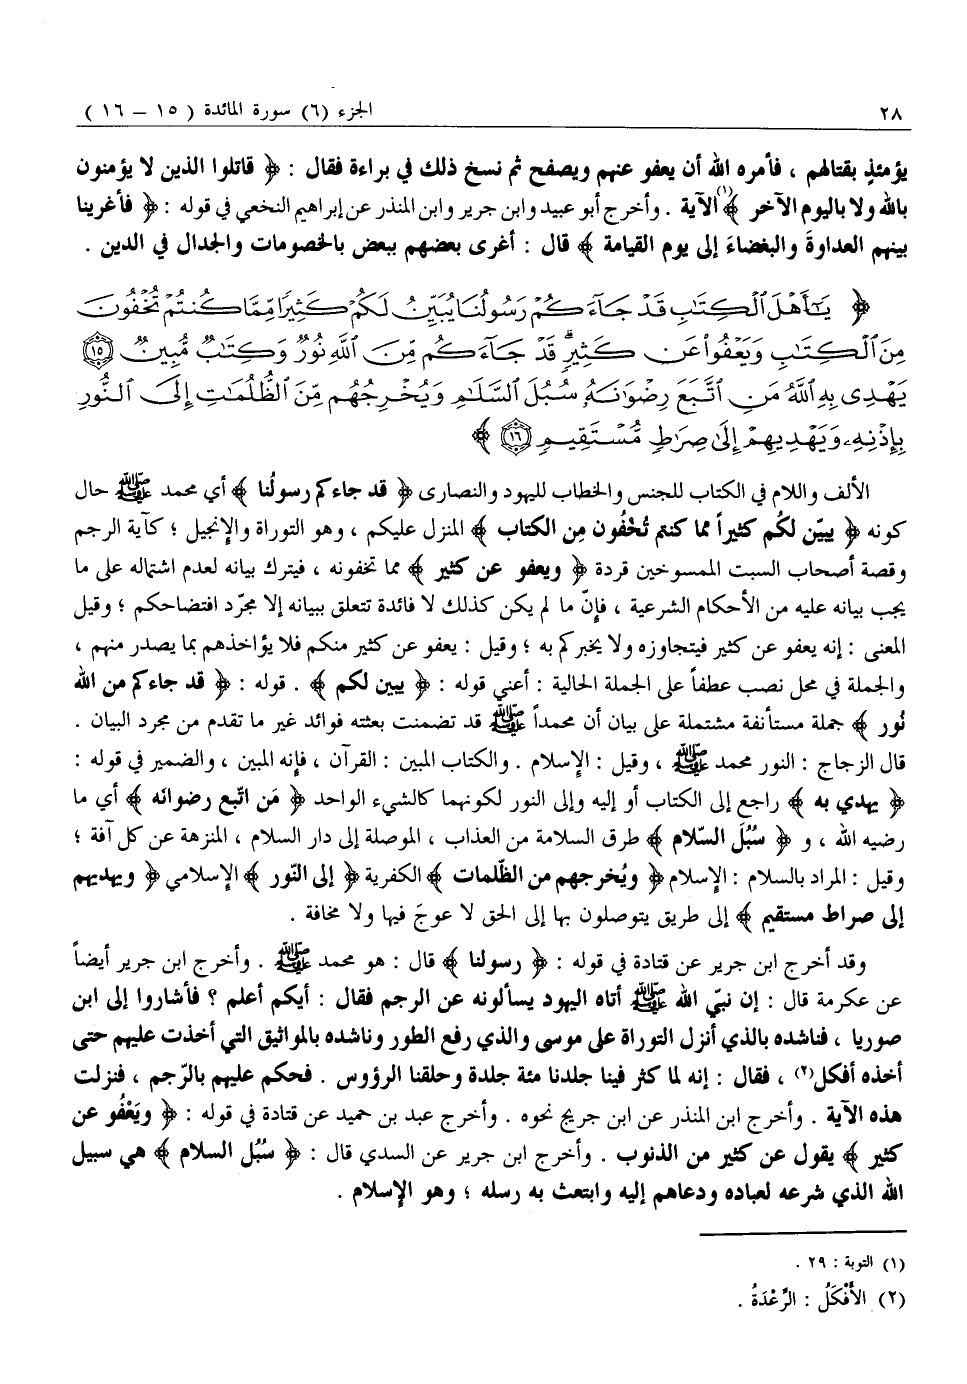 ٢٨
الجزء (٦) سورة المائدة ( ١٥ – ١٦ )
يؤمئذٍ بقتالهم ، فأمره الله أن يعفو عنهم ويصفح ثم نسخ ذلك في براءة فقال : ﴿ قاتلوا الذين لا يؤمنون
بالله ولا باليوم الآخر ﴾(١) الآية . وأخرج أبو عبيد وابن جرير وابن المنذر عن إبراهيم النخعي في قوله : ﴿ فأغرينا
بينهم العداوةَ والبغضاءَ إلى يوم القيامة ﴾ قال : أغرى بعضهم ببعض بالخصومات والجدال في الدين .
﴿ يَٰٓأَهْلَ ٱلْكِتَٰبِ قَدْ جَآءَكُمْ رَسُولُنَا يُبَيِّنُ لَكُمْ كَثِيرًا مِّمَّا كُنتُمْ تُخْفُونَ
مِنَ ٱلْكِتَٰبِ وَيَعْفُوا۟ عَن كَثِيرٍۚ قَدْ جَآءَكُم مِّنَ ٱللَّهِ نُورٌ وَكِتَٰبٌ مُّبِينٌ ۝١٥
يَهْدِى بِهِ ٱللَّهُ مَنِ ٱتَّبَعَ رِضْوَٰنَهُۥ سُبُلَ ٱلسَّلَٰمِ وَيُخْرِجُهُم مِّنَ ٱلظُّلُمَٰتِ إِلَى ٱلنُّورِ
بِإِذْنِهِۦ وَيَهْدِيهِمْ إِلَىٰ صِرَٰطٍ مُّسْتَقِيمٍ ۝١٦ ﴾
الألف واللام في الكتاب للجنس والخطاب لليهود والنصارى ﴿ قد جاءكم رسولُنا ﴾ أي محمد ﷺ حال
كونه ﴿ يبيّن لكُم كثيراً مما كنتم تُخفُون مِن الكتاب ﴾ المنزل عليكم ، وهو التوراة والإنجيل ؛ كآية الرجم
وقصة أصحاب السبت الممسوخين قردة ﴿ ويعفو عن كثير ﴾ مما تخفونه ، فيترك بيانه لعدم اشتماله على ما
يجب بيانه عليه من الأحكام الشرعية ، فإنّ ما لم يكن كذلك لا فائدة تتعلق ببيانه إلا مجرّد افتضاحكم ؛ وقيل
المعنى : إنه يعفو عن كثير فيتجاوزه ولا يخبركم به ؛ وقيل : يعفو عن كثير منكم فلا يؤاخذهم بما يصدر منهم ،
والجملة في محل نصب عطفاً على الجملة الحالية : أعني قوله : ﴿ يبين لكم ﴾ . قوله : ﴿ قد جاءكم من الله
نُور ﴾ جملة مستأنفة مشتملة على بيان أن محمداً ﷺ قد تضمنت بعثته فوائد غير ما تقدم من مجرد البيان .
قال الزجاج : النور محمد ﷺ ، وقيل : الإسلام . والكتاب المبين : القرآن ، فإنه المبين ، والضمير في قوله :
﴿ يهدي به ﴾ راجع إلى الكتاب أو إليه وإلى النور لكونهما كالشيء الواحد ﴿ مَن اتّبع رضوانَه ﴾ أي ما
رضيه الله ، و ﴿ سُبُلَ السّلام ﴾ طرق السلامة من العذاب ، الموصلة إلى دار السلام ، المنزهة عن كل آفة ؛
وقيل : المراد بالسلام : الإسلام ﴿ ويُخرجهم من الظّلمات ﴾ الكفرية ﴿ إلى النّور ﴾ الإسلامي ﴿ ويهديهم
إلى صراط مستقيم ﴾ إلى طريق يتوصلون بها إلى الحق لا عوجَ فيها ولا مخافة .
وقد أخرج ابن جرير عن قتادة في قوله : ﴿ رسولنا ﴾ قال : هو محمد ﷺ . وأخرج ابن جرير أيضاً
عن عكرمة قال : إن نبيّ الله ﷺ أتاه اليهود يسألونه عن الرجم فقال : أيكم أعلم ؟ فأشاروا إلى ابن
صوريا ، فناشده بالذي أنزل التوراة على موسى والذي رفع الطور وناشده بالمواثيق التي أخذت عليهم حتى
أخذه أفكل(٢) ، فقال : إنه لما كثر فينا جلدنا مئة جلدة وحلقنا الرؤوس . فحكم عليهم بالرّجم ، فنزلت
هذه الآية . وأخرج ابن المنذر عن ابن جريج نحوه . وأخرج عبد بن حميد عن قتادة في قوله : ﴿ ويَعْفُو عن
كثير ﴾ يقول عن كثير من الذنوب . وأخرج ابن جرير عن السدي قال : ﴿ سُبُل السلام ﴾ هي سبيل
الله الذي شرعه لعباده ودعاهم إليه وابتعث به رسله ؛ وهو الإسلام .
(١) التوبة : ٢٩ .
(٢) الأَفْكَلُ : الرِّعْدَةُ .